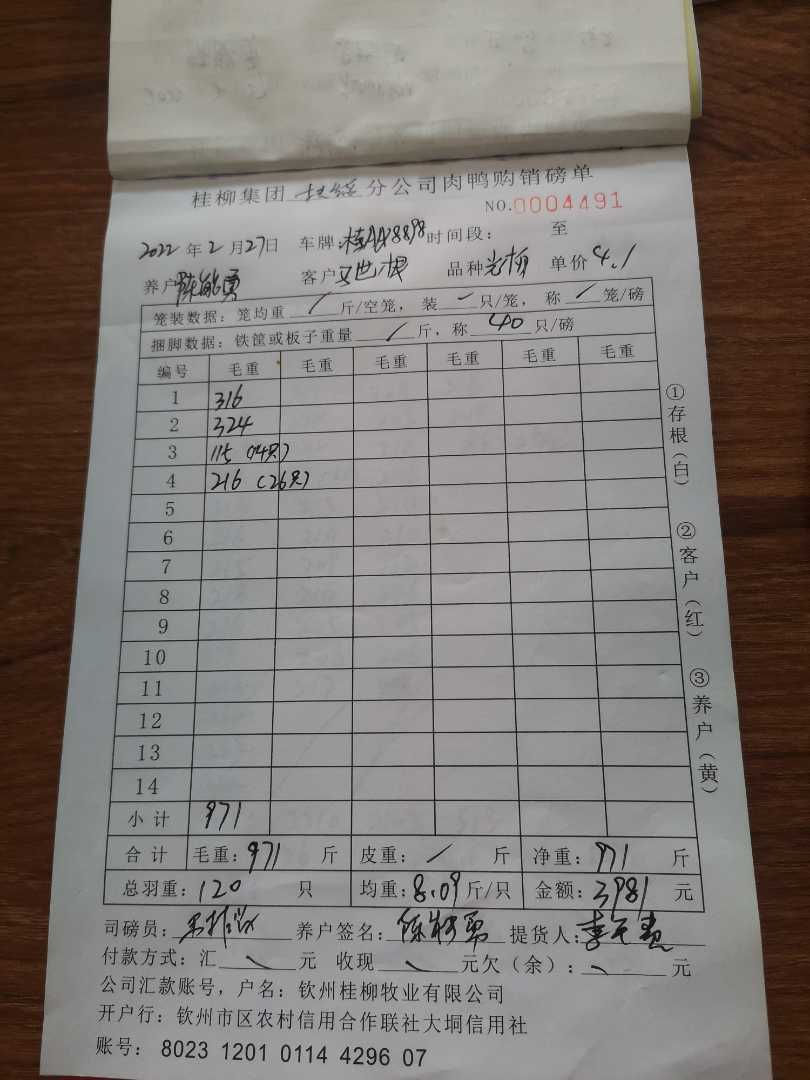 桂柳集团扶绥分公司肉鸭购销磅单
NO.0004491
2022年2月27日 车牌:桂AA8898 时间段: 至
养户陈能勇 客户 世根 品种 单价4.1
笼装数据:笼均重 / 斤/空笼,装 - 只/笼,称 / 笼/磅
捆脚数据:铁筐或板子重量 / 斤,称 40 只/磅
编号 毛重 毛重 毛重 毛重 毛重 毛重
1 316
2 324
3 115 (14只)
4 216 (26只)
5
6
7
8
9
10
11
12
13
14
小计 971
合计 毛重:971 斤 皮重: / 斤 净重:971 斤
总羽重:120 只 均重:8.09斤/只 金额:3981 元
司磅员: 养户签名:陈能勇 提货人:李
付款方式:汇 \ 元 收现 \ 元欠(余): \ 元
公司汇款账号,户名:钦州桂柳牧业有限公司
开户行:钦州市区农村信用合作联社大垌信用社
账号:8023 1201 0114 4296 07
①存根(白)
②客户(红)
③养户(黄)